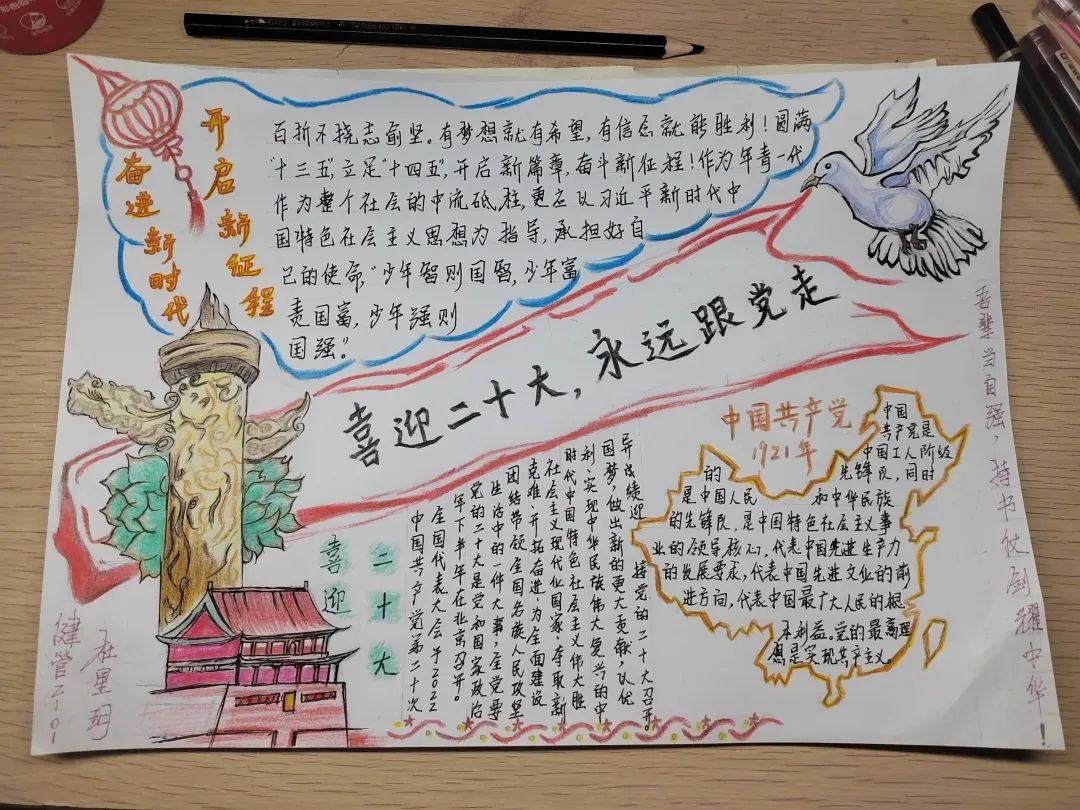 开启新征程
奋进新时代
百折不挠志俞坚。有梦想就有希望,有信念就能胜利!圆满
"十三五",立足"十四五",开启新篇章,奋斗新征程!作为年青一代
作为整个社会的中流砥柱,更应以习近平新时代中
国特色社会主义思想为指导,承担好自
己的使命"少年智则国智,少年富
责国富,少年强则
国强。"
喜迎二十大,永远跟党走
吾辈当自强,持书仗剑耀中华!
中国共产党
1921年
中国
共产党是
中国工人阶级
的先锋队,同时
是中国人民和中华民族
的先锋队,是中国特色社会主义事
业的领导核心,代表中国先进生产力
的发展要求,代表中国先进文化的前
进方向,代表中国最广大人民的根
本利益。党的最高理
想是实现共产主义。
二十大
喜迎
中国共产党第二十次
全国代表大会于2022
年下半年在北京召开。
党的二十大是党和国家政治
生活中的一件大事,全党要
团结带领全国各族人民攻坚
克难、开拓奋进,为全面建设
社会主义现代化国家、夺取新
时代中国特色社会主义伟大胜
利、实现中华民族伟大复兴的中
国梦,做出新的更大贡献,以优
异成绩迎接党的二十大召开。
健管2101